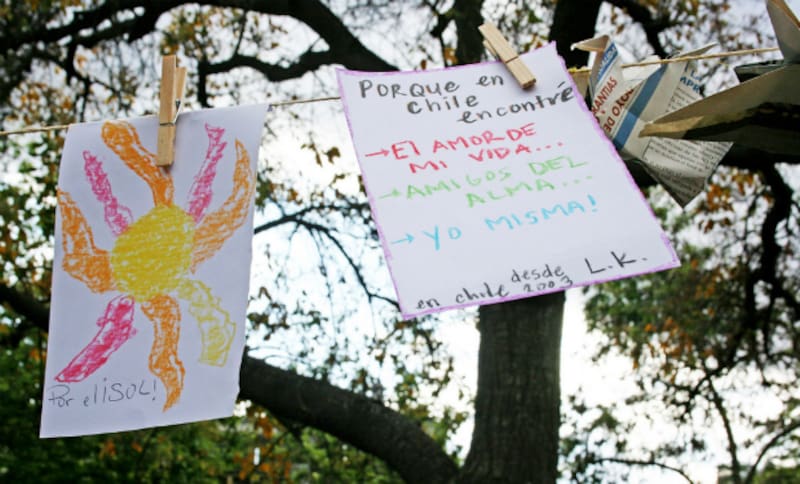 Por el iSOL!
PORQUE EN
chile
encontré
→ El AMOR DE
MI VIDA...
→ AMIGOS DEL
ALMA...
→ YO MISMA!
en chile desde
2003 L.K.